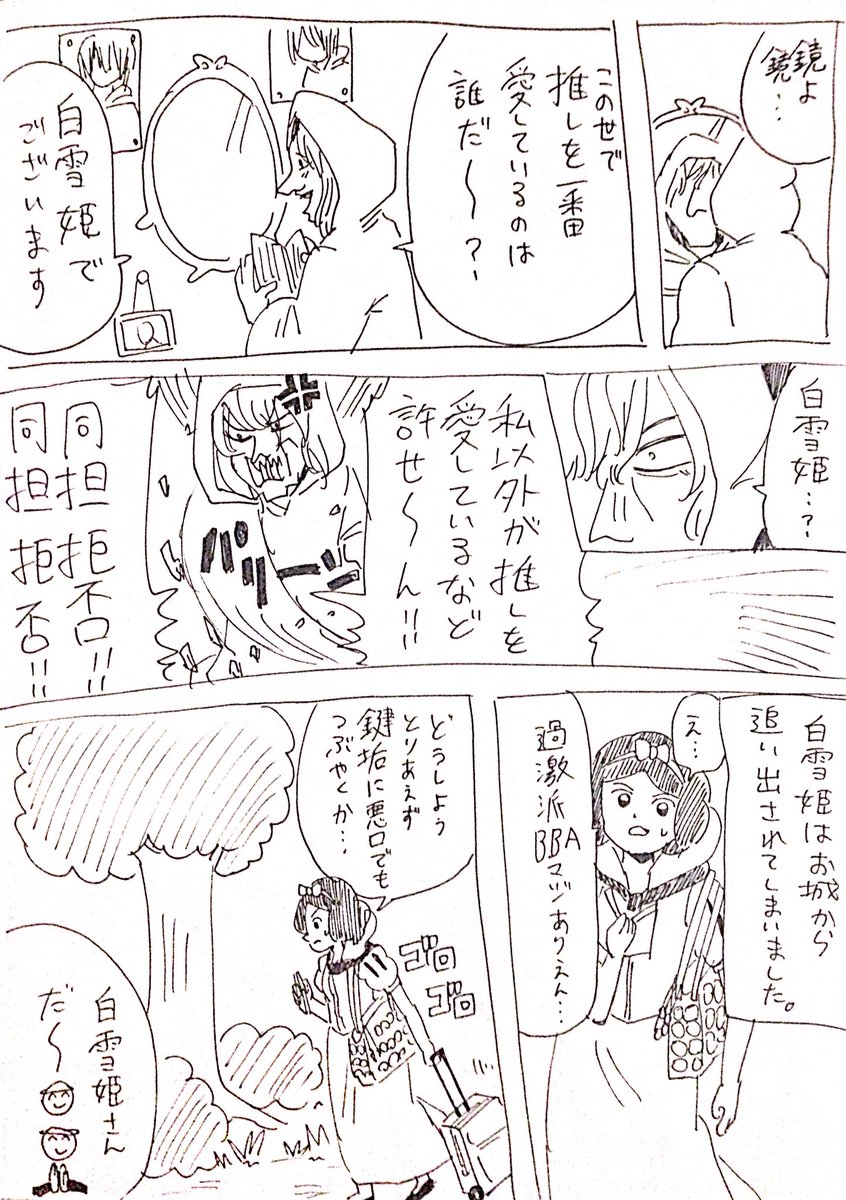 鏡よ
鏡…
この世で
推しを一番
愛しているのは
誰だ〜?
白雪姫で
ございます
白雪姫…?
私以外が推しを
愛しているなど
許せ〜ん!!
パリーン
同担拒否!!
同担拒否!!
白雪姫はお城から
追い出されてしまいました。
え…
過激派BBAマジありえん…
どうしよう
とりあえず
鍵垢に悪口でも
つぶやくか…
ゴロ
ゴロ
白雪姫さん
だ〜